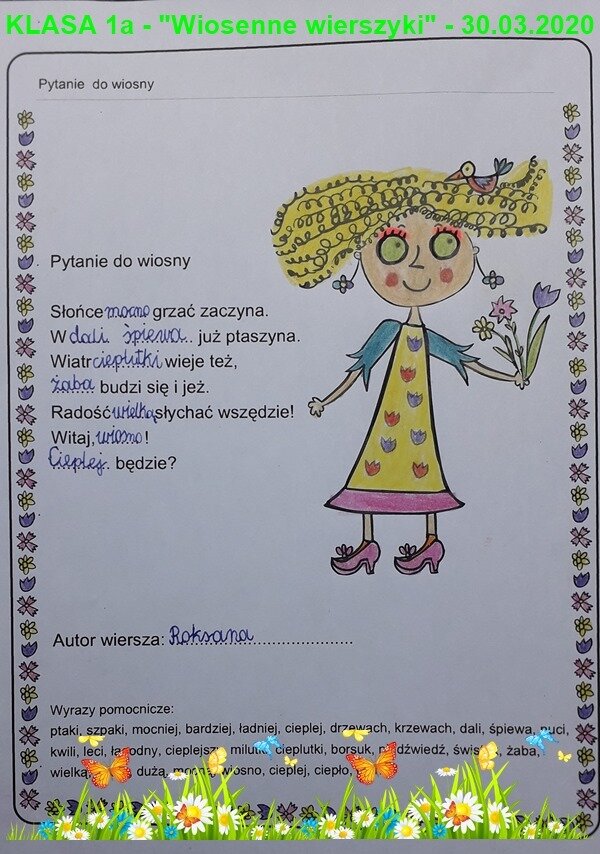 KLASA 1a - "Wiosenne wierszyki" - 30.03.2020
Pytanie do wiosny
Pytanie do wiosny
Słońce mocno grzać zaczyna.
W dali śpiewa.. już ptaszyna.
Wiatr cieplutki wieje też,
żaba budzi się i jeż.
Radość wielką słychać wszędzie!
Witaj, wiosno!
Cieplej. będzie?
Autor wiersza: Roksana
Wyrazy pomocnicze:
ptaki, szpaki, mocniej, bardziej, ładniej, cieplej, drzewach, krzewach, dali, śpiewa, nuci,
kwili, leci, łagodny, cieplejszy, milutki, cieplutki, borsuk, niedźwiedź, żaba,
wielką, dużą, wiosno, cieplej, ciepło,